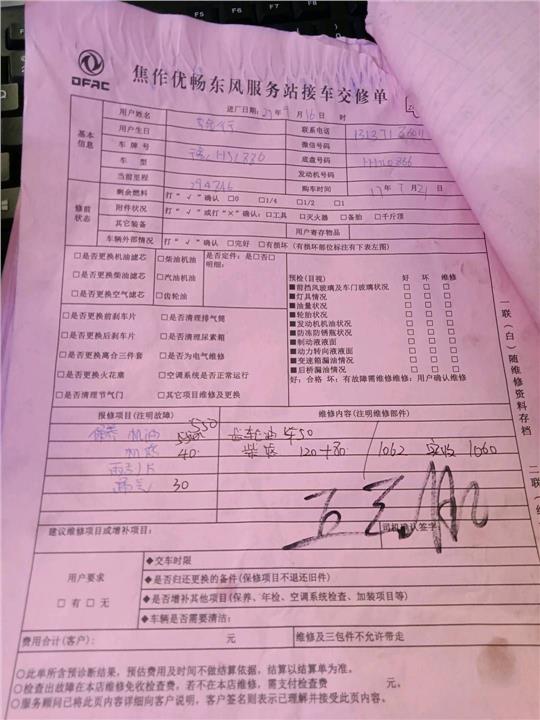 DFAC
焦作优畅东风服务站接车交修单
进厂日期: 年 9月16日 时
基本信息
用户姓名 联系电话
用户生日 微信号码
车牌号 底盘号码
车型 发动机号码
当前里程 购车时间 17年7月21日
修前状态
剩余燃料 打“√”确认 □0 □1/4 □1/2 □1
附件状况 打“√”或打“×”确认:□工具 □灭火器 □备胎 □千斤顶
其它装备 用户寄存物品
车辆外部情况 打“√”确认 □完好 □有损坏(有损坏部位标注有下表左图)
□是否更换机油滤芯 □柴油机油 是否定件:是□否□
□是否更换柴油滤芯 □汽油机油 明细:
□是否更换空气滤芯 □齿轮油
□是否更换前刹车片 □是否清理排气筒
□是否更换后刹车片 □是否清理尿素箱
□是否更换离合三件套 □是否为电气维修
□是否更换火花塞 □空调系统是否正常运行
□是否清理节气门 □其它项目维修及更换
预检(目视) 好 坏 维修
■前挡风玻璃及车门玻璃状况 □ □ □
■灯具情况 □ □ □
■油量状况 □ □ □
■轮胎状况 □ □ □
■发动机机油状况 □ □ □
■防冻防锈瓶状况 □ □ □
■制动液液面 □ □ □
■动力转向液液面 □ □ □
■变速箱漏油情况 □ □ □
■后桥漏油情况 □ □ □
好:合格 坏:有故障需维修维修:用户确认维修
报修项目(注明故障) 维修内容(注明维修部件)
保养 机油 550
40 柴滤 120+80 1062 实收1060
30
建议维修项目或增补项目: 司机确认签字:
用户要求
□有 □无
◆交车时限
◆是否归还更换的备件(保修项目不退还旧件)
◆是否增补其他项目(保养、年检、空调系统检查、加装项目等)
◆车辆是否需要清洁:
费用合计(客户): 元 维修及三包件不允许带走
○此单所含预诊断结果,预估费用及时间不做结算依据,结算以结算单为准。
○检查出故障在本店维修免收检查费,若不在本店维修,需支付检查费 元。
○服务顾问已将此页内容详细向客户说明,客户签名则表示已理解并接受此页内容。
一联(白)随维修资料存档
二联(